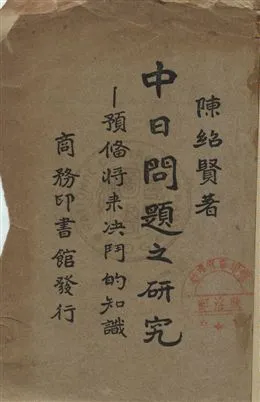 陳紹賢著
中日問題之研究
—預備將来决鬥的知識
商務印書館發行